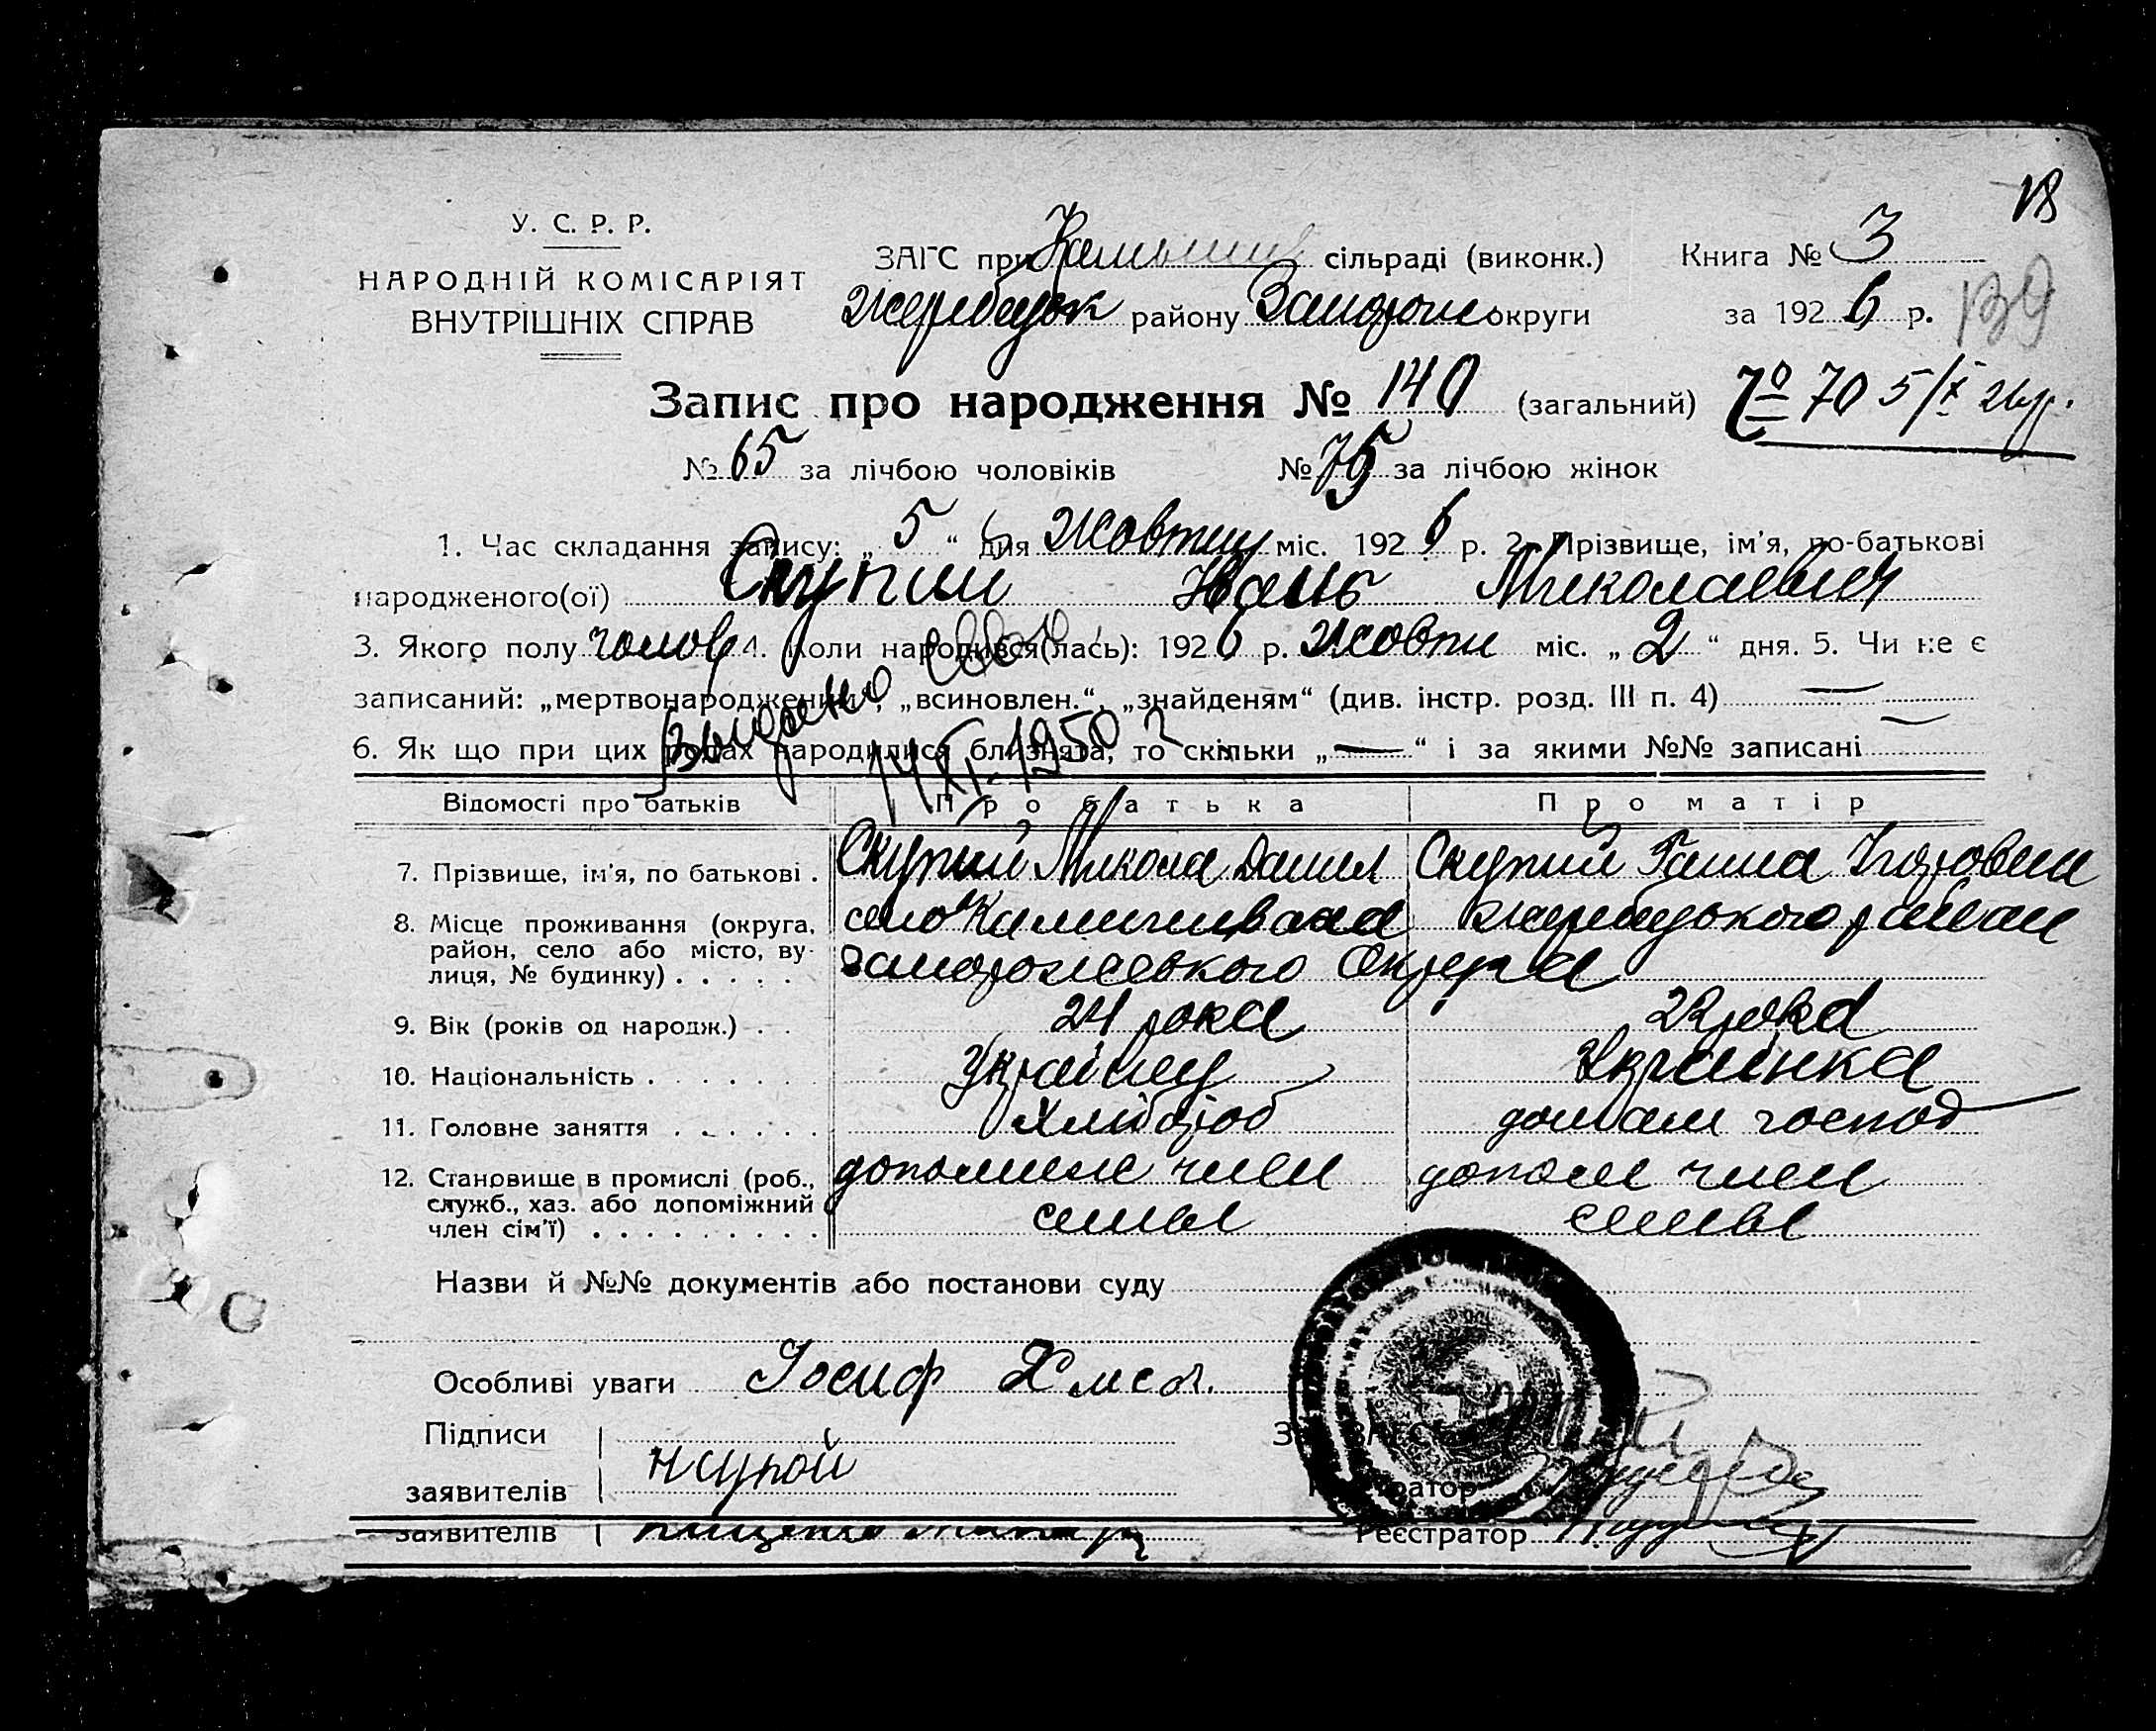 18
У. С. Р. Р.
НАРОДНІЙ КОМІСАРІЯТ
ВНУТРІШНІХ СПРАВ
ЗАГС при сільраді (виконк.)
Жеребецьк району Запорож округи
Книга № 3
за 1926 р.
139
Запис про народження № 140 (загальний)
70 5/X 26 р.
№ 65 за лічбою чоловіків № 75 за лічбою жінок
1. Час складання запису: „ 5 “ дня Жовтня міс. 1926 р. 2. Прізвище, ім'я, по-батькові
народженого(ої) Скупий Иванъ Миколаевич
3. Якого полу чолов 4. Коли народився(лась): 1926 р. Жовтн міс. „ 2 “ дня. 5. Чи не є
записаний: „мертвонароджений“, „всиновлен.“, „знайденям“ (див. інстр. розд. III п. 4) —
6. Як що при цих родах народилися близнята, то скільки „ — “ і за якими №№ записані
Выдано
14 XI. 1950 г
Відомості про батьків Про батька Про матір
7. Прізвище, ім'я, по батькові . Скупий Микола Данил Скупий Ганна
8. Місце проживання (округа, село Жеребецького району
район, село або місто, ву-
лиця, № будинку) . . . . . Запорожського Округа
9. Вік (років од народж.) . . 24 рока 22 рока
10. Національність . . . . . . . Українец Українка
11. Головне заняття . . . . . . Хлібороб домашн господ
12. Становище в промислі (роб., допоміжн член допом член
служб., хаз. або допоміжний
член сім'ї) . . . . . . . . . . семьи семьи
Назви й №№ документів або постанови суду
Особливі уваги Іосиф
Підписи
заявителів
Реєстратор
заявителів Реєстратор